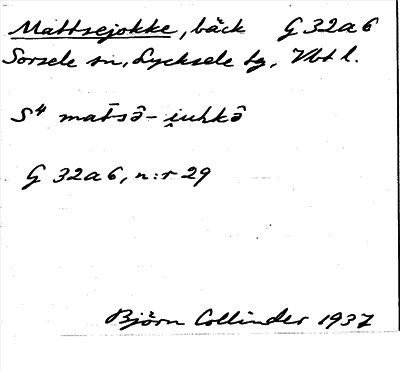 Mattsejokke, bäck G 32a6
Sorsele sn, Lycksele tg, Vbt l.
S4 matsô- i̯uhkô
G 32a6, n:r 29
Björn Collinder 1937